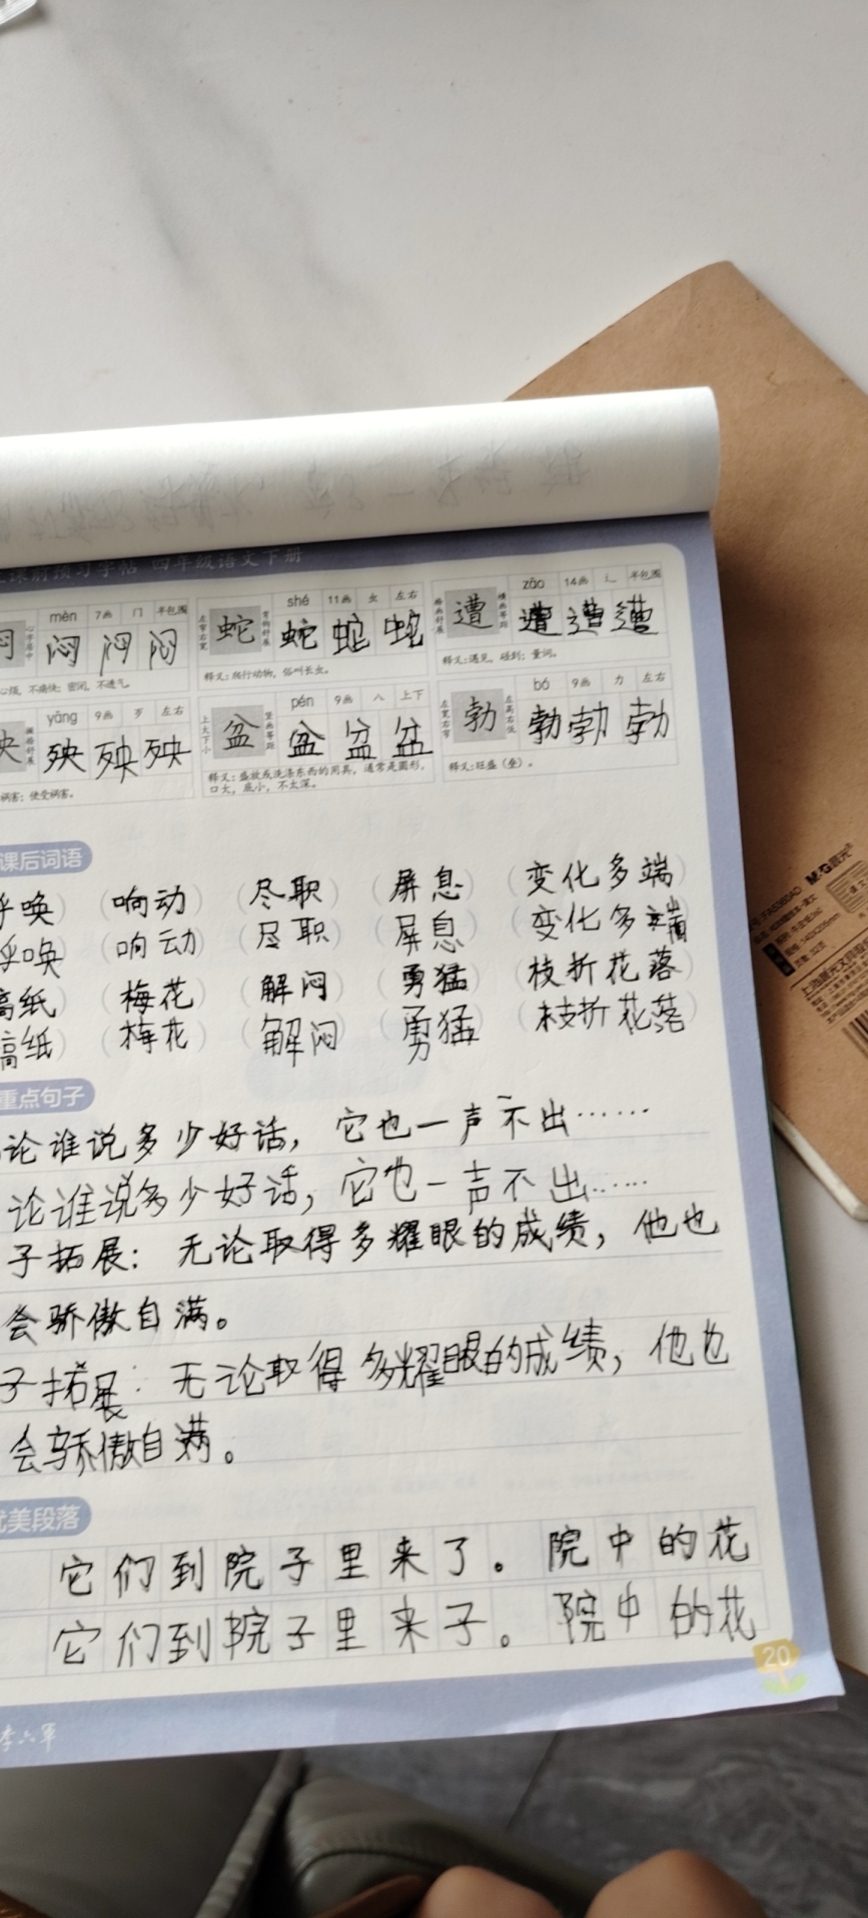 课前预习字帖 四年级语文下册
mèn 7画 门 半包围 shé 11画 虫 左右 zāo 14画 辶 半包围
闷 闷 闷 闷 蛇 蛇 蛇 蛇 遭 遭 遭 遭
心烦，不痛快；密闭，不透气。 释义：爬行动物，俗叫长虫。 释义：遇见，碰到；量词。
yāng 9画 歹 左右 pén 9画 八 上下 bó 9画 力 左右
殃 殃 殃 殃 盆 盆 盆 盆 勃 勃 勃 勃
祸害；使受祸害。 释义：盛放或洗涤东西的用具，通常是圆形，口大，底小，不太深。 释义：旺盛（奋）。
课后词语
呼唤） （响动） （尽职） （屏息） （变化多端）
呼唤） （响动） （尽职） （屏息） （变化多端
稿纸） （梅花） （解闷） （勇猛） （枝折花落）
稿纸） （梅花） （解闷） （勇猛） （枝折花落）
重点句子
论谁说多少好话，它也一声不出……
论谁说多少好话，它也一声不出……
子拓展：无论取得多耀眼的成绩，他也
会骄傲自满。
子拓展：无论取得多耀眼的成绩，他也
会骄傲自满。
优美段落
它们到院子里来了。院中的花
它们到院子里来子。院中的花
20
李六军
M&G晨光